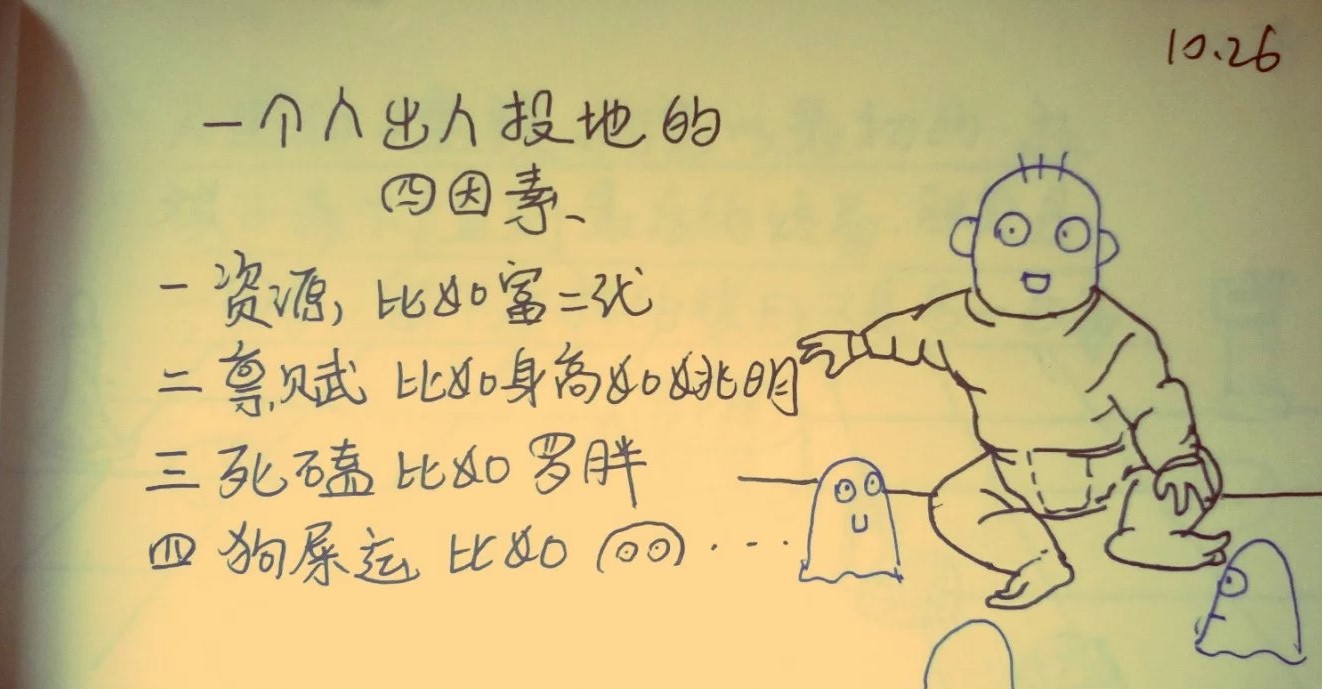 10.26
一个人出人投地的
四因素、
一 资源，比如富二代
二 尊赋 比如身高如姚明
三 死磕 比如罗胖
四 狗屎运 比如 ...